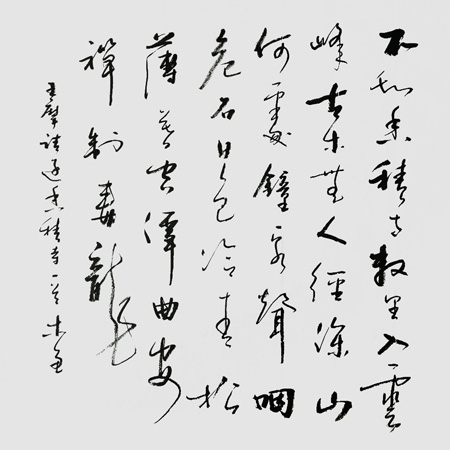 不知香積寺數里入雲
峰古木無人徑深山
何處鐘泉聲咽
危石日色冷青松
薄暮空潭曲安
禪制毒龍
王摩詰過香積寺一首